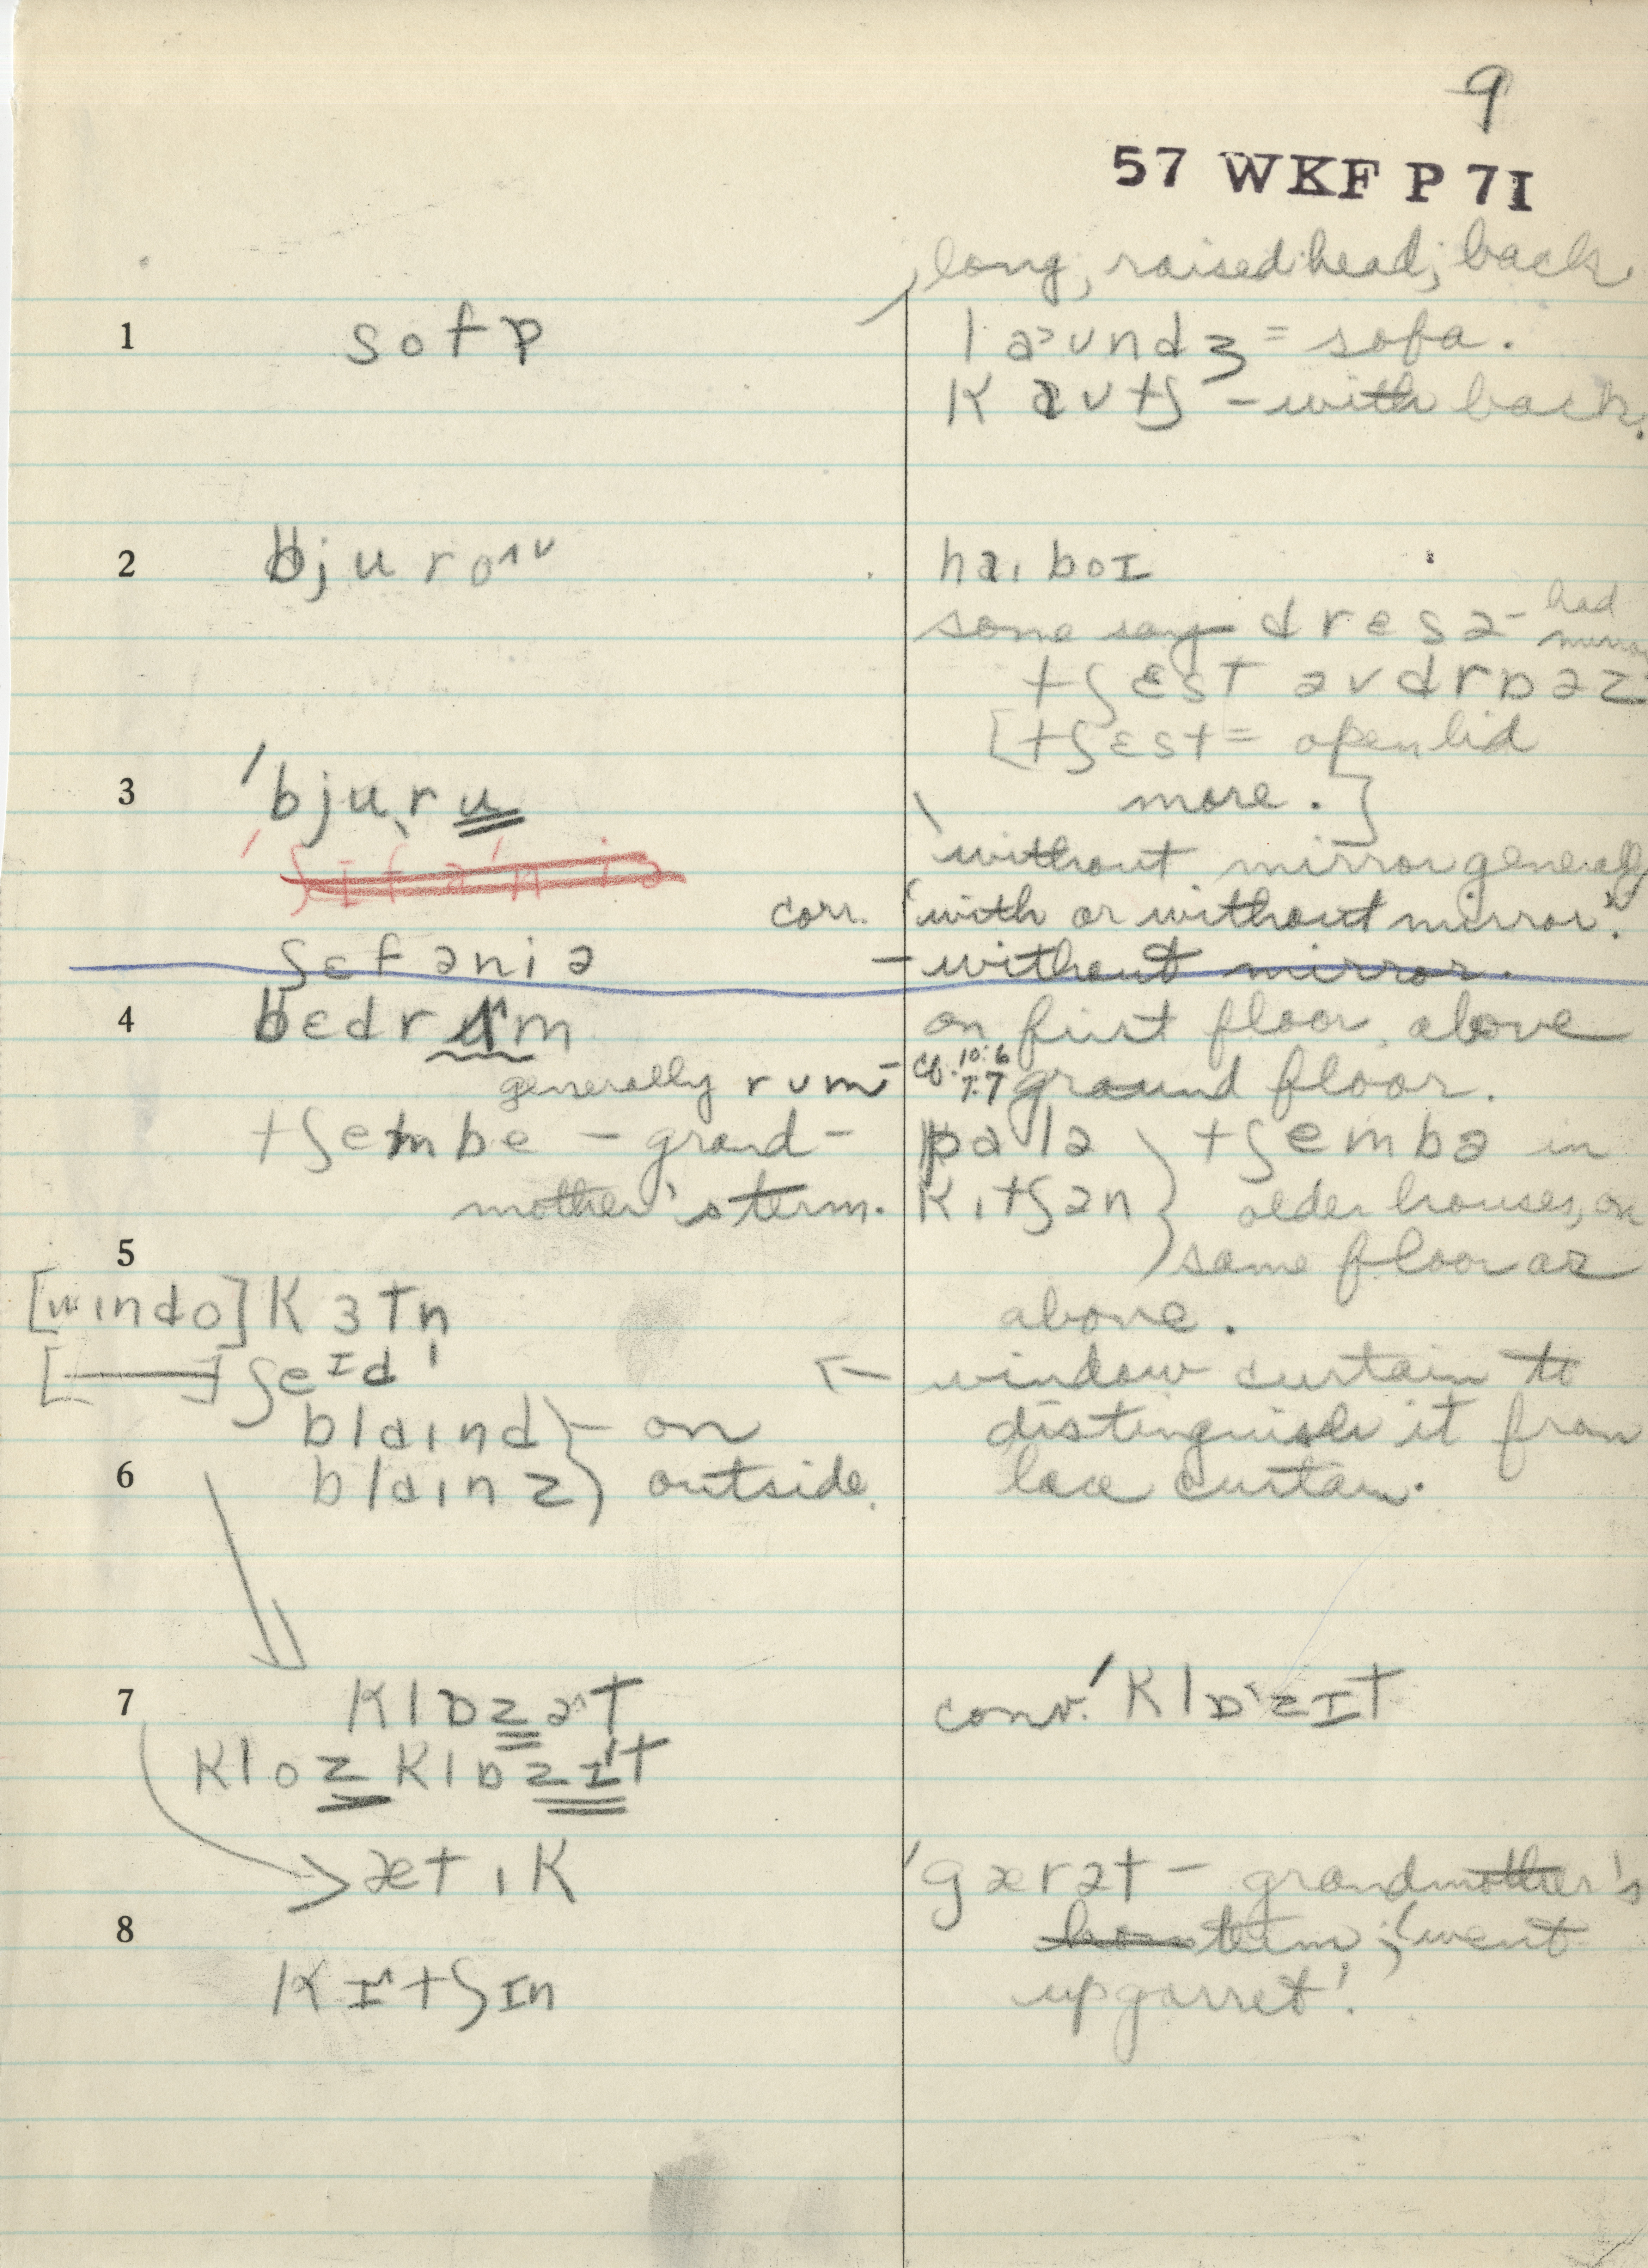 9
57 WKF P 7I
long, raised head, back
1 sofɒ
laᵊundʒ = sofa.
kautʃ – with back.
2 bjuroᴧᵛ
haɪ boɪ
some say drɛsə- had
tʃɛst əvdrɒəz
[tʃɛst = open lid
3 'bjuˎru
more.]
'without mirror generally
corr. 'with or without mirror.'
ʃɛfəniə
– without mirror.
4 bɛdrum
on first floor above
generally rum
cf. 10:6 7:7 ground floor.
tʃembe – grand-
mother's term.
palə } tʃembə in
kɪtʃən } older houses, on
5
same floor as
[wɪndo] kɜtn̩
above.
[——] ʃeɪd
← window curtain to
blaɪnd } – on
distinguish it from
6 blaɪnz } outside.
lace curtain.
7 klɒzət
conv. 'klɒ'zɪt
kloz klɒzɪt
ætɪk
'gærət – grandmother's
8
term; 'went
kɪtʃɪn
up garret'.